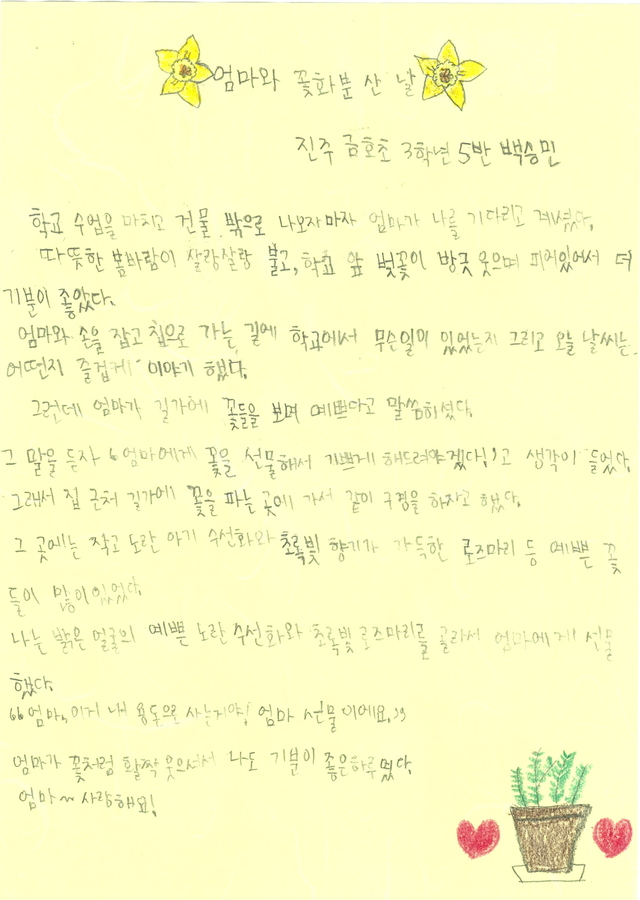 엄마와 꽃화분 산 날
진주 금호초 3학년 5반 백승민
학교 수업을 마치고 건물 밖으로 나오자마자 엄마가 나를 기다리고 계셨다.
따뜻한 봄바람이 살랑살랑 불고, 학교 앞 벚꽃이 방긋 웃으며 피어있어서 더
기분이 좋았다.
엄마와 손을 잡고 집으로 가는 길에 학교에서 무슨일이 있었는지 그리고 오늘 날씨는
어떤지 즐겁게 이야기 했다.
그런데 엄마가 길가에 꽃들을 보며 예쁘다고 말씀하셨다.
그 말을 듣자 '엄마에게 꽃을 선물해서 기쁘게 해드려야겠다!'고 생각이 들었다.
그래서 집 근처 길가에 꽃을 파는 곳에 가서 같이 구경을 하자고 했다.
그 곳에는 작고 노란 아기 수선화와 초록빛 향기가 가득한 로즈마리 등 예쁜 꽃
들이 많이있었다.
나는 밝은 얼굴의 예쁜 노란 수선화와 초록빛 로즈마리를 골라서 엄마에게 선물
했다.
"엄마, 이거 내 용돈으로 사는거야! 엄마 선물이에요."
엄마가 꽃처럼 활짝 웃으셔서 나도 기분이 좋은하루였다.
엄마~ 사랑해요!